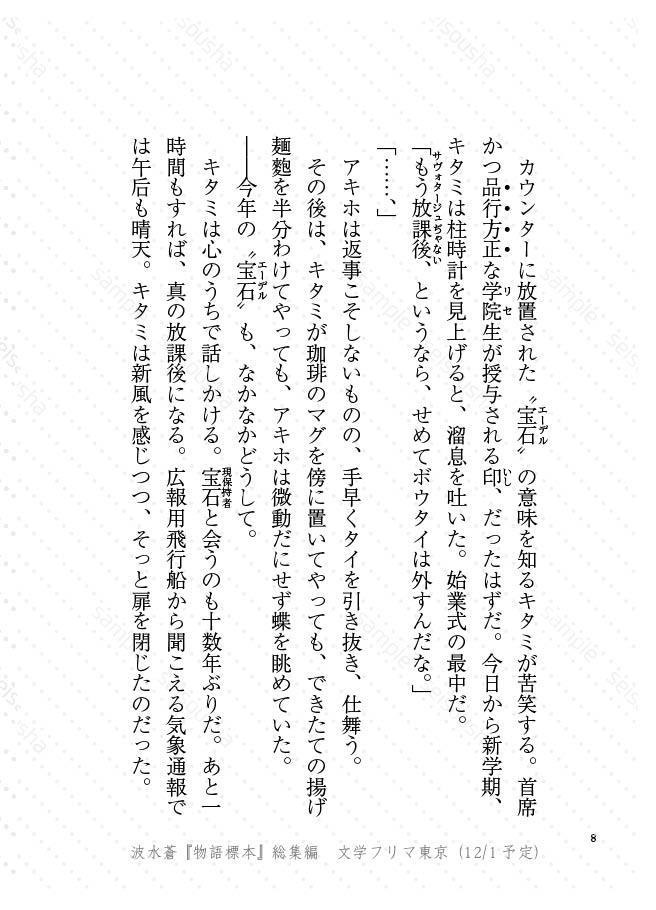 カウンターに放置された〝宝石〟の意味を知るキタミが苦笑する。首席
エーデル
かつ品行方正な学院生が授与される印、だったはずだ。今日から新学期、
リセ
いし
キタミは柱時計を見上げると、溜息を吐いた。始業式の最中だ。
「もう放課後、というなら、せめてボウタイは外すんだな。」
サヴォタージュぢゃない
「……、」
アキホは返事こそしないものの、手早くタイを引き抜き、仕舞う。
その後は、キタミが珈琲のマグを傍に置いてやっても、できたての揚げ
麺麭を半分わけてやっても、アキホは微動だにせず蝶を眺めていた。
――今年の〝宝石〟も、なかなかどうして。
エーデル
キタミは心のうちで話しかける。宝石と会うのも十数年ぶりだ。あと一
現保持者
時間もすれば、真の放課後になる。広報用飛行船から聞こえる気象通報で
は午后も晴天。キタミは新風を感じつつ、そっと扉を閉じたのだった。
8
波水蒼『物語標本』総集編　文学フリマ東京（12/1予定）
sample